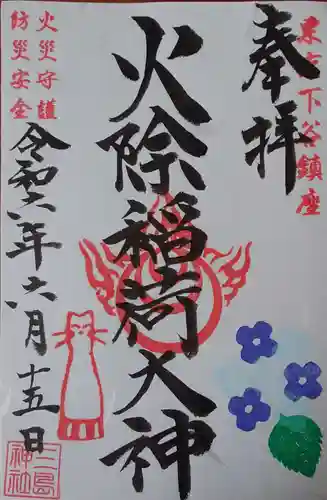 奉拝
東京下谷鎮座
火除稲荷大神
火災守護
防災安全
令和六年六月十五日
三島神社